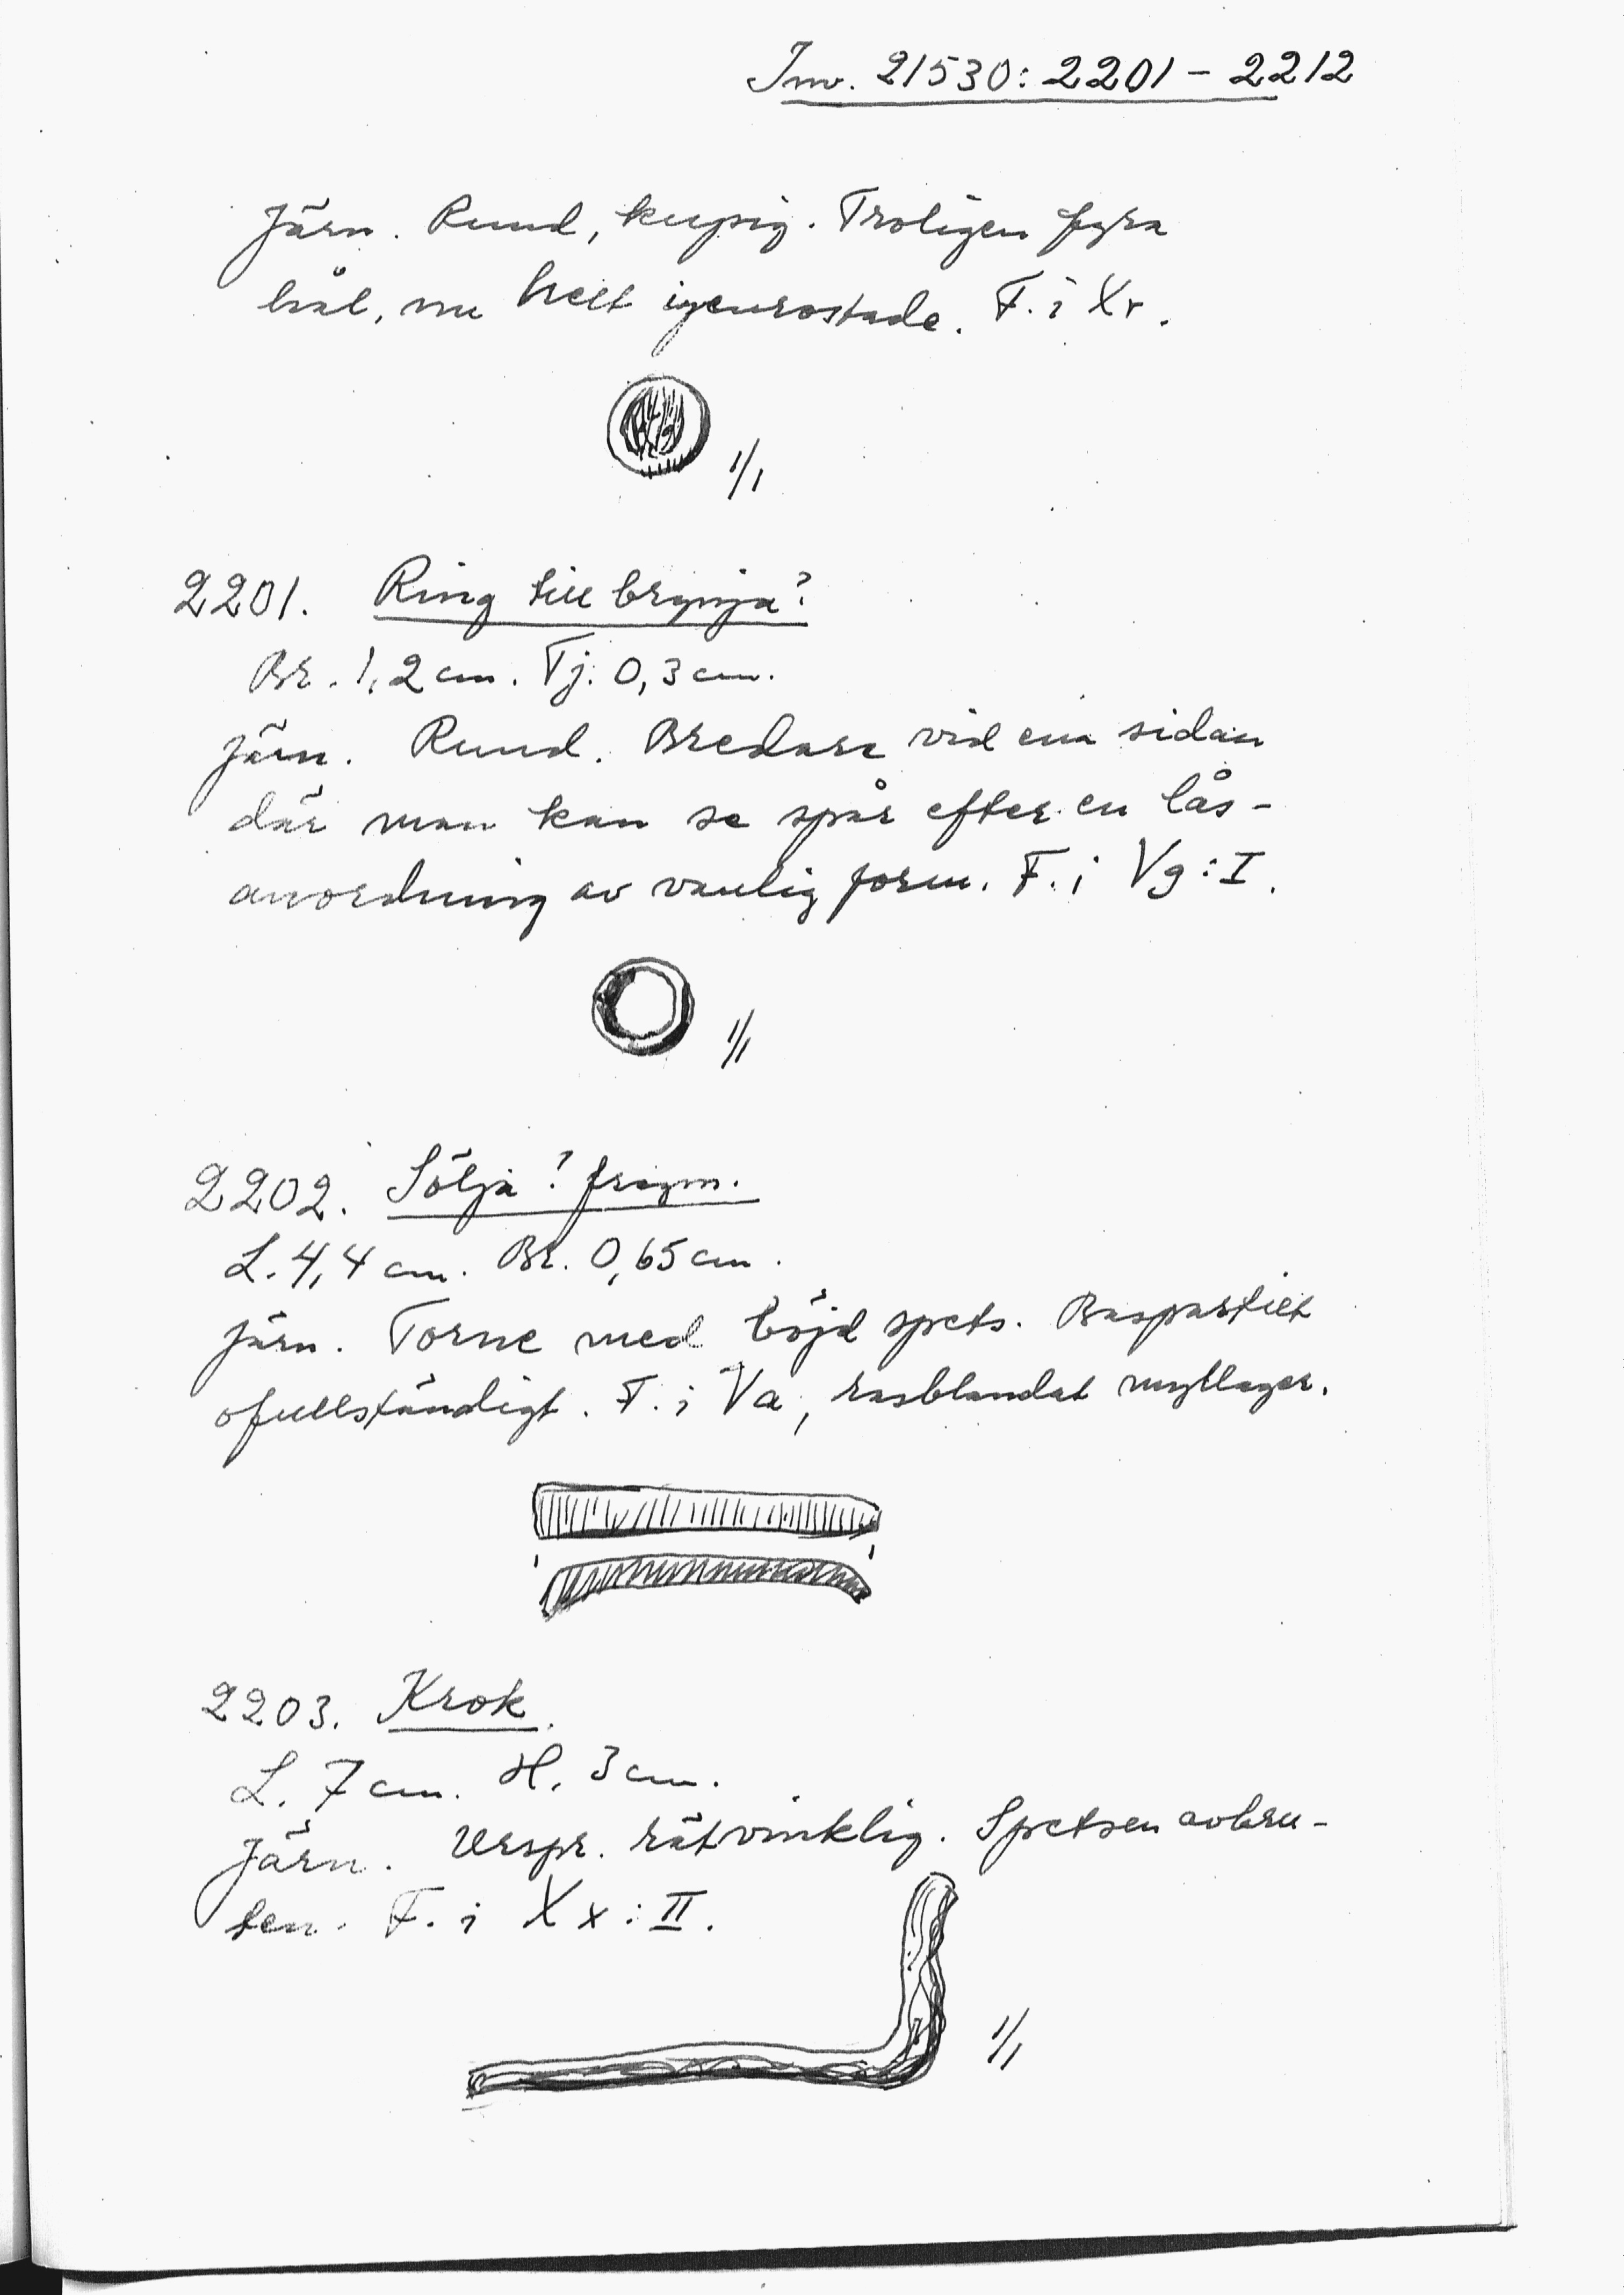 Inv. 21530:2201-2212
Järn. Rund, kupig. Troligen fyra
hål, nu helt igenrostade. F. i Xv.
1/1
2201. Ring till brynja?
Br. 1,2 cm. Tj. 0,3 cm.
Järn. Rund. Bredare vid ena sidan
där man kan se spår efter en lås-
anordning av vanlig form. F. i Vg:I.
1/1
2202. Sölja? fragm.
L. 4,4 cm. Br. 0,65 cm.
Järn. Torne med böjd spets. Baspartiet
ofullständigt. F. i Va, rasblandat myllager.
2203. Krok.
L. 7 cm. H. 3 cm.
Järn. Urspr. rätvinklig. Spetsen avbru-
ten. F. i Xx:II.
1/1